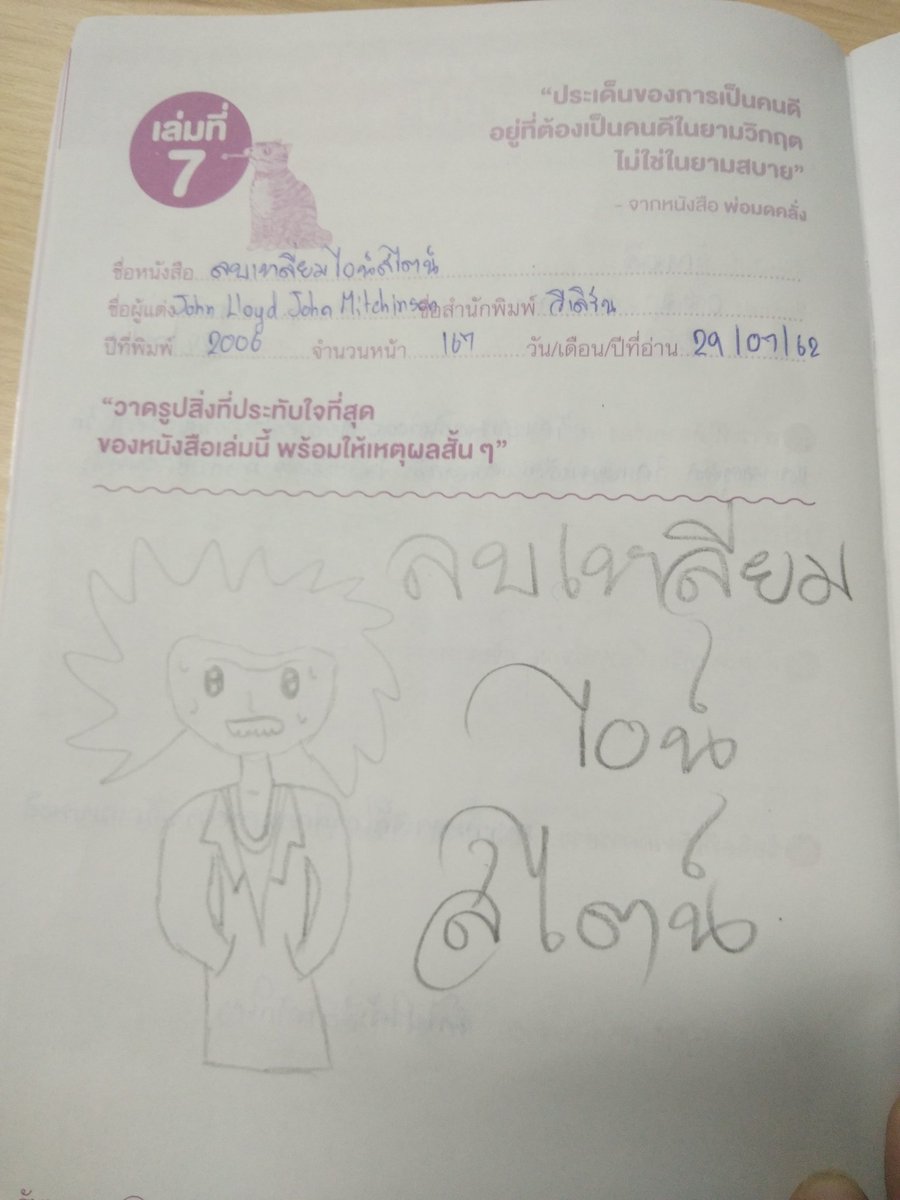 เล่มที่
7
“ประเด็นของการเป็นคนดี
อยู่ที่ต้องเป็นคนดีในยามวิกฤต
ไม่ใช่ในยามสบาย”
- จากหนังสือ พ่อมดคลั่ง
ชื่อหนังสือ ลบเหลี่ยมไอน์สไตน์
ชื่อผู้แต่ง John Lloyd John Mitchinson ชื่อสำนักพิมพ์ วีเลิร์น
ปีที่พิมพ์ 2006 จำนวนหน้า 167 วัน/เดือน/ปีที่อ่าน 29/07/62
“วาดรูปสิ่งที่ประทับใจที่สุด
ของหนังสือเล่มนี้ พร้อมให้เหตุผลสั้น ๆ”
ลบเหลี่ยม
ไอน์
สไตน์